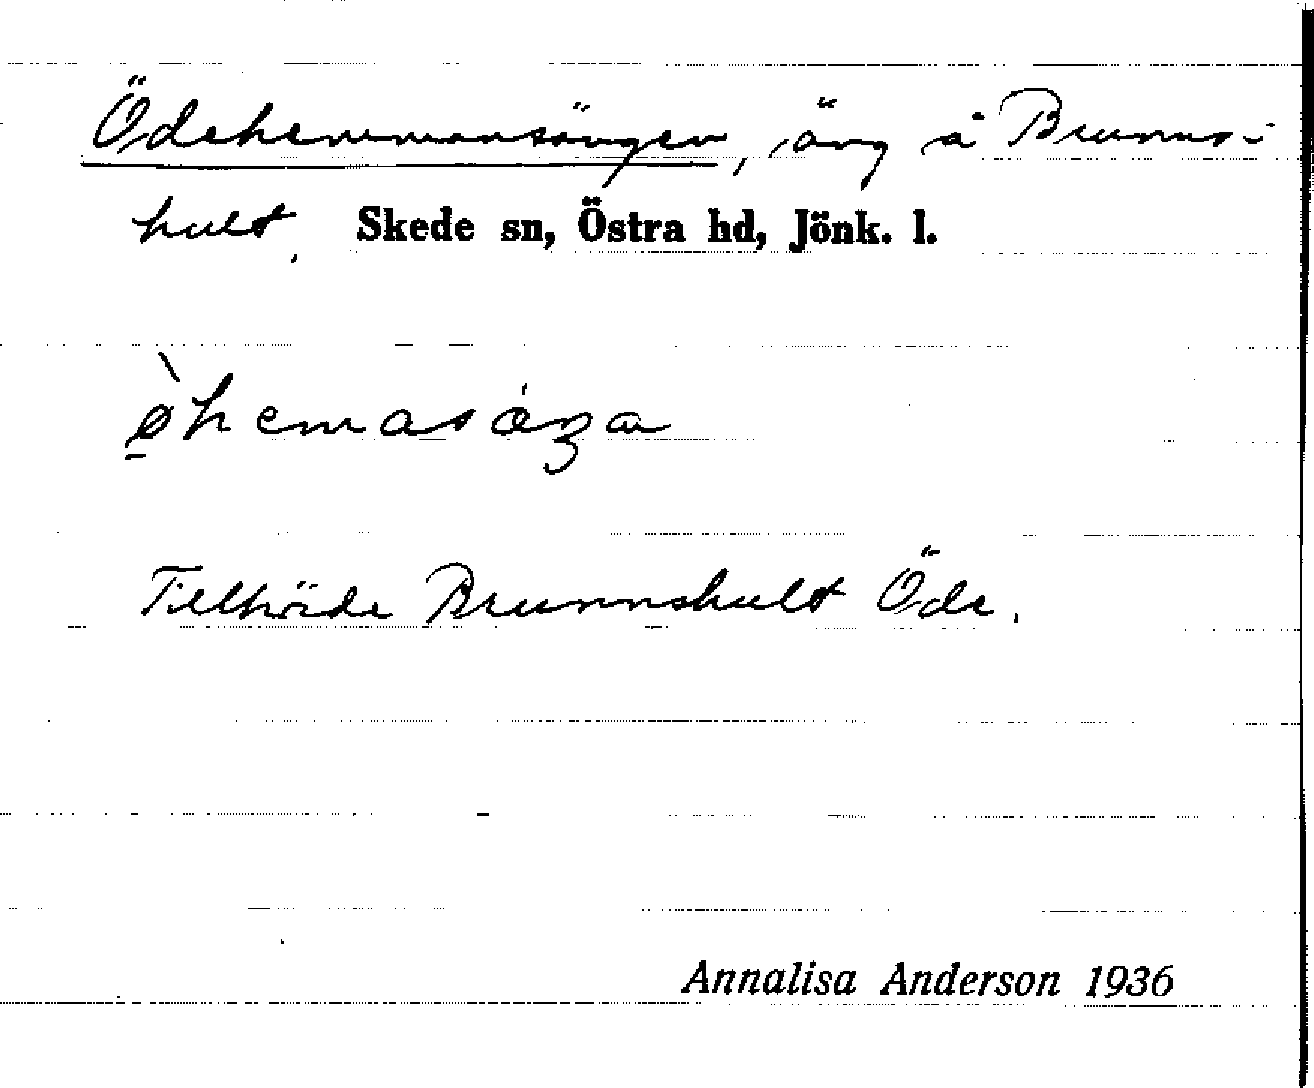 Ödehemmansängen, äng å Brunns-
hult, Skede sn, Östra hd, Jönk. l.
ø̀hemasáŋa
Tillhörde Brunnshult Öde.
Annalisa Anderson 1936